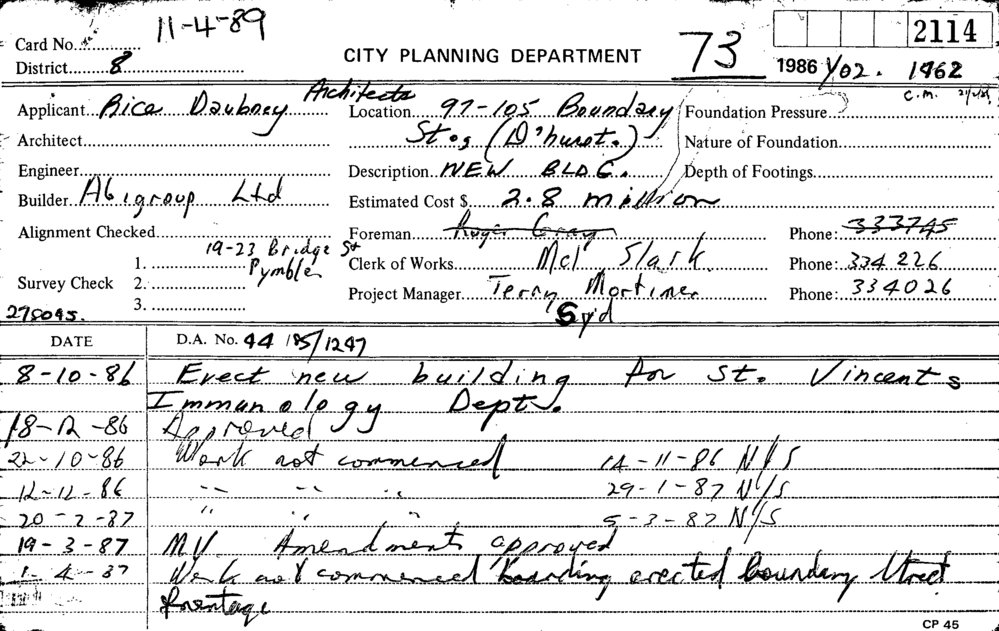 11-4-89
Card No.
District 8
CITY PLANNING DEPARTMENT
73
2114
1986 1/02. 1962
C.M.
Applicant Rice Daubney Architects
Location 97-105 Boundary
St. (D'hurst.)
Foundation Pressure
Architect
Nature of Foundation
Engineer
Description NEW BLDG.
Depth of Footings
Builder Abigroup Ltd
Estimated Cost $ 2.8 million
Alignment Checked
Foreman Roger Gray
Phone: 333745
19-23 Bridge St
Pymble
Survey Check
1.
2.
3.
Clerk of Works Mel Slark.
Phone: 334226
Project Manager Terry Mortimer
Phone: 334026
Syd
278095.
DATE
D.A. No. 44/85/1247
8-10-86 Erect new building for St. Vincents
Immunology Dept.
18-12-86 Approved
22-10-86 Work not commenced 14-11-86 N/S
12-12-86 " " " 29-1-87 N/S
20-2-87 " " " 5-3-87 N/S
19-3-87 MV. Amendments approved
1-4-87 Work not commenced hoarding erected boundary street
frontage
CP 45